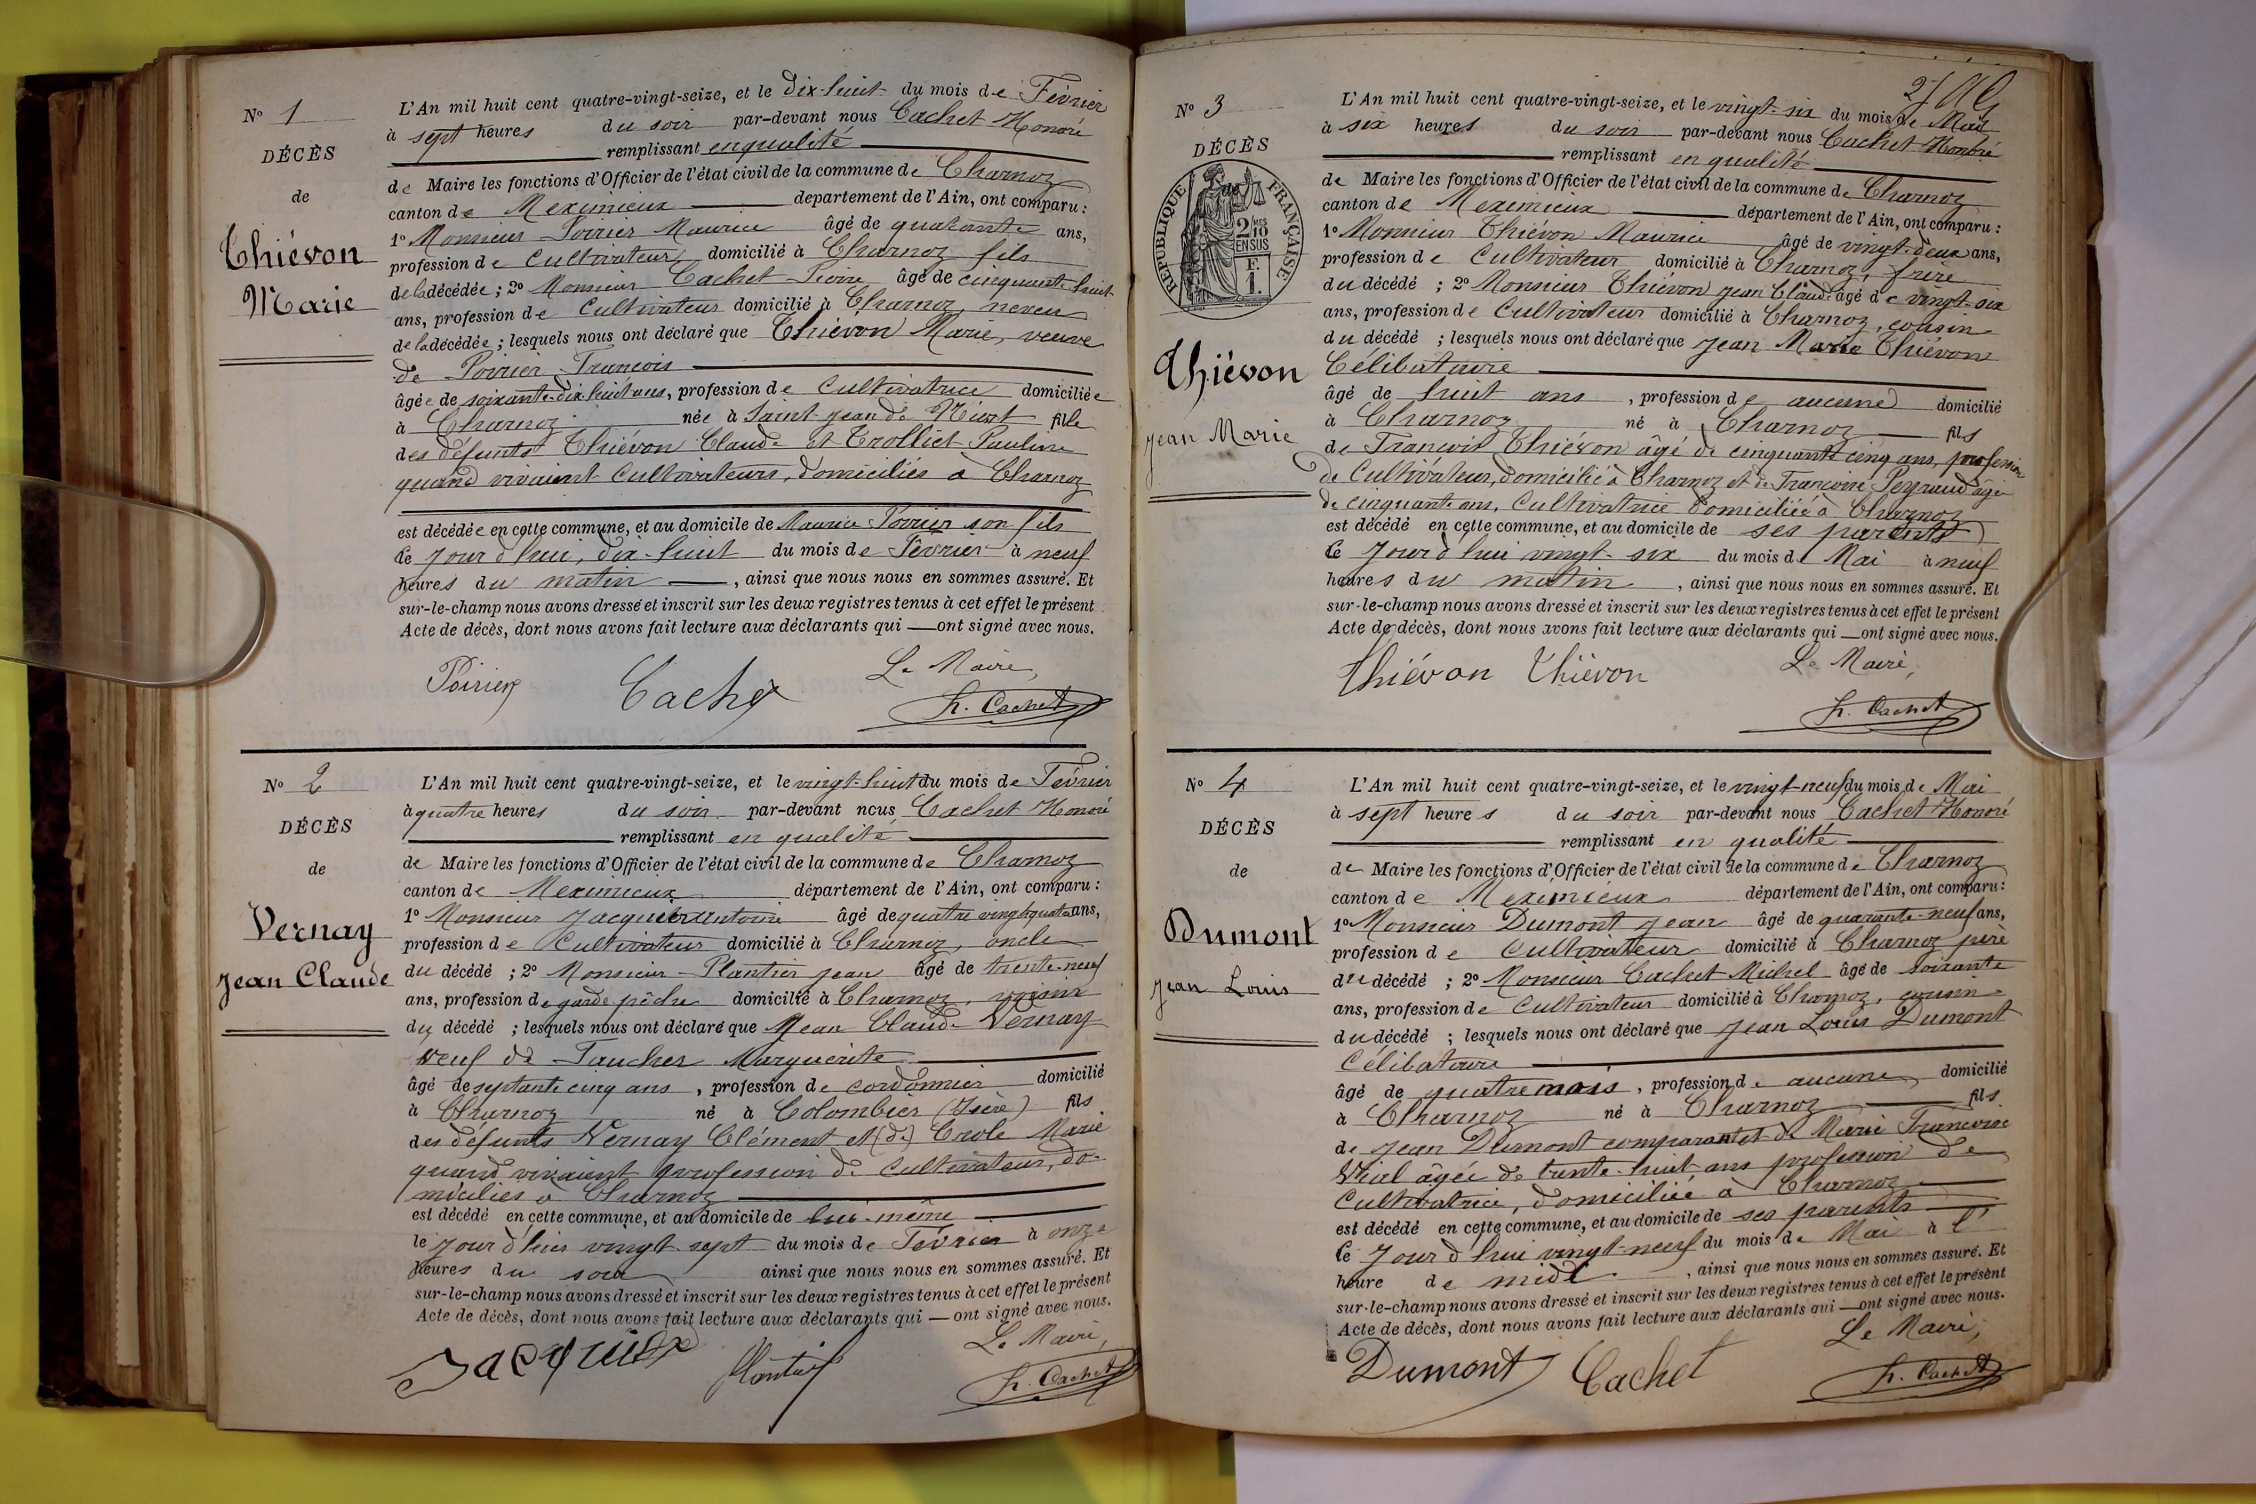 N° 1
DÉCÈS
de
Thiévon
Marie
L'An mil huit cent quatre-vingt-seize, et le dix-huit du mois de Février
à sept heures du soir par-devant nous Cachet Honoré
remplissant en qualité
de Maire les fonctions d'Officier de l'état civil de la commune de Charnoz
canton de Meximieux departement de l'Ain, ont comparu :
1° Monsieur Poirier Maurice âgé de quarante ans,
profession de Cultivateur, domicilié à Charnoz fils
de la décédée ; 2° Monsieur Cachet Pierre âgé de cinquante-huit
ans, profession de Cultivateur domicilié à Charnoz, neveu
de la décédée ; lesquels nous ont déclaré que Thiévon Marie, veuve
de Poirier François
âgée de soixante-dix-huit ans, profession de Cultivatrice domiciliée
à Charnoz née à Saint-Jean de Niost fille
des défunts Thiévon Claude et Trolliet Pauline
quand vivaient Cultivateurs, domiciliés à Charnoz
est décédée en cette commune, et au domicile de Maurice Poirier son fils
le jour d'hui, dix-huit du mois de Février à neuf
heures du matin, ainsi que nous nous en sommes assuré. Et
sur-le-champ nous avons dressé et inscrit sur les deux registres tenus à cet effet le présent
Acte de décès, dont nous avons fait lecture aux déclarants qui — ont signé avec nous.
Poirier Cachet Le Maire,
h. Cachet
N° 2
DÉCÈS
de
Vernay
Jean Claude
L'An mil huit cent quatre-vingt-seize, et le vingt-huit du mois de Février
à quatre heures du soir par-devant nous Cachet Honoré
remplissant en qualité
de Maire les fonctions d'Officier de l'état civil de la commune de Charnoz
canton de Meximieux département de l'Ain, ont comparu :
1° Monsieur Jacquier Antoine âgé de quatre vingt quatre ans,
profession de Cultivateur domicilié à Charnoz, oncle
du décédé ; 2° Monsieur Plantier Jean âgé de trente-neuf
ans, profession de garde pêche domicilié à Charnoz, voisin
du décédé ; lesquels nous ont déclaré que Jean Claude Vernay
veuf de Faucher Marguerite
âgé de septante cinq ans, profession de cordonnier domicilié
à Charnoz né à Colombier (Isère) fils
des défunts Vernay Clément et (de) Crole Marie
quand vivaient profession de Cultivateur, do-
miciliés à Charnoz
est décédé en cette commune, et au domicile de lui-même
le jour d'hier vingt-sept du mois de Février à onze
heures du soir ainsi que nous nous en sommes assuré. Et
sur-le-champ nous avons dressé et inscrit sur les deux registres tenus à cet effet le présent
Acte de décès, dont nous avons fait lecture aux déclarants qui — ont signé avec nous.
Jacquier Plantier Le Maire,
h. Cachet
N° 3
DÉCÈS
RÉPUBLIQUE FRANÇAISE
2 MES
/10
EN SUS
F.
1.
Thiévon
Jean Marie
L'An mil huit cent quatre-vingt-seize, et le vingt-six du mois de Mai
à six heures du soir par-devant nous Cachet Honoré
remplissant en qualité
de Maire les fonctions d'Officier de l'état civil de la commune de Charnoz
canton de Meximieux département de l'Ain, ont comparu :
1° Monsieur Thiévon Maurice âgé de vingt-deux ans,
profession de Cultivateur domicilié à Charnoz, frère
du décédé ; 2° Monsieur Thiévon Jean Claude âgé de vingt-six
ans, profession de Cultivateur domicilié à Charnoz, cousin
du décédé ; lesquels nous ont déclaré que Jean Marie Thiévon
Célibataire
âgé de huit ans, profession de aucune domicilié
à Charnoz né à Charnoz fils
de François Thiévon âgé de cinquante cinq ans, profession
de Cultivateur, domicilié à Charnoz et de Françoise Peyraud âgée
de cinquante ans, Cultivatrice domiciliée à Charnoz
est décédé en cette commune, et au domicile de ses parents
le jour d'hui vingt-six du mois de Mai à neuf
heures du matin, ainsi que nous nous en sommes assuré. Et
sur-le-champ nous avons dressé et inscrit sur les deux registres tenus à cet effet le présent
Acte de décès, dont nous avons fait lecture aux déclarants qui — ont signé avec nous.
Thiévon Thiévon Le Maire,
h. Cachet
N° 4
DÉCÈS
de
Dumont
Jean Louis
L'An mil huit cent quatre-vingt-seize, et le vingt-neuf du mois de Mai
à sept heures du soir par-devant nous Cachet Honoré
remplissant en qualité
de Maire les fonctions d'Officier de l'état civil de la commune de Charnoz
canton de Meximieux département de l'Ain, ont comparu :
1° Monsieur Dumont Jean âgé de quarante-neuf ans,
profession de Cultivateur domicilié à Charnoz père
du décédé ; 2° Monsieur Cachet Michel âgé de soixante
ans, profession de Cultivateur domicilié à Charnoz, cousin
du décédé ; lesquels nous ont déclaré que Jean Louis Dumont
Célibataire
âgé de quatre mois, profession de aucune domicilié
à Charnoz né à Charnoz fils
de Jean Dumont comparant et de Marie Françoise
Vial âgée de trente-huit ans profession de
Cultivatrice, domiciliée à Charnoz
est décédé en cette commune, et au domicile de ses parents
le jour d'hui vingt-neuf du mois de Mai à l'
heure de midi, ainsi que nous nous en sommes assuré. Et
sur-le-champ nous avons dressé et inscrit sur les deux registres tenus à cet effet le présent
Acte de décès, dont nous avons fait lecture aux déclarants qui — ont signé avec nous.
Dumont Cachet Le Maire,
h. Cachet